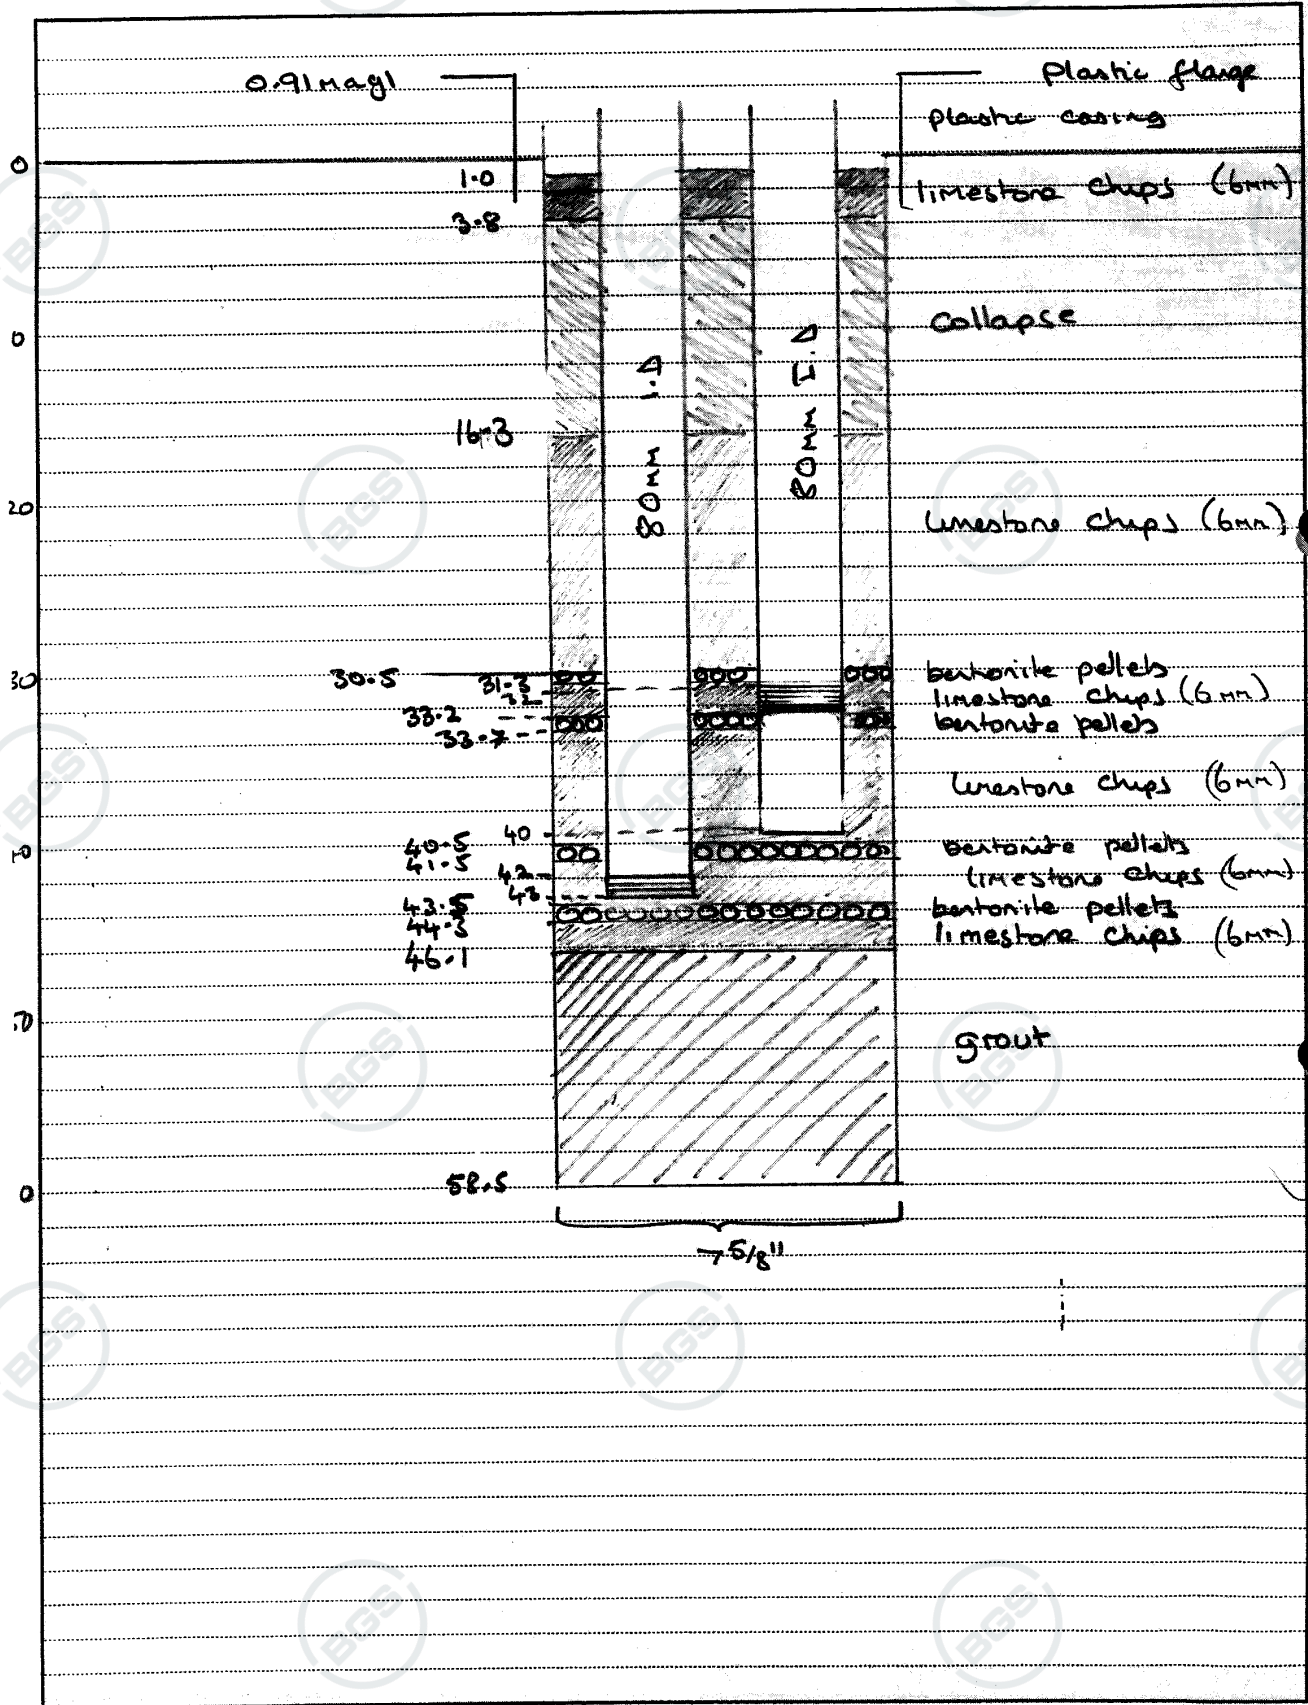 0.91 magl
plastic flange
plastic casing
0
1.0
limestone chips (6mm)
3.8
0
collapse
80mm I.D
80mm I.D
16.3
20
limestone chips (6mm)
30
30.5
31.3
32
33.2
33.7
bentonite pellets
limestone chips (6mm)
bentonite pellets
limestone chips (6mm)
40
40.5
41.5
42
43
43.5
44.5
46.1
bentonite pellets
limestone chips (6mm)
bentonite pellets
limestone chips (6mm)
grout
0
58.5
7 5/8"
BGS
BGS
BGS
BGS
BGS
BGS
BGS
BGS
BGS
BGS
BGS
BGS
BGS